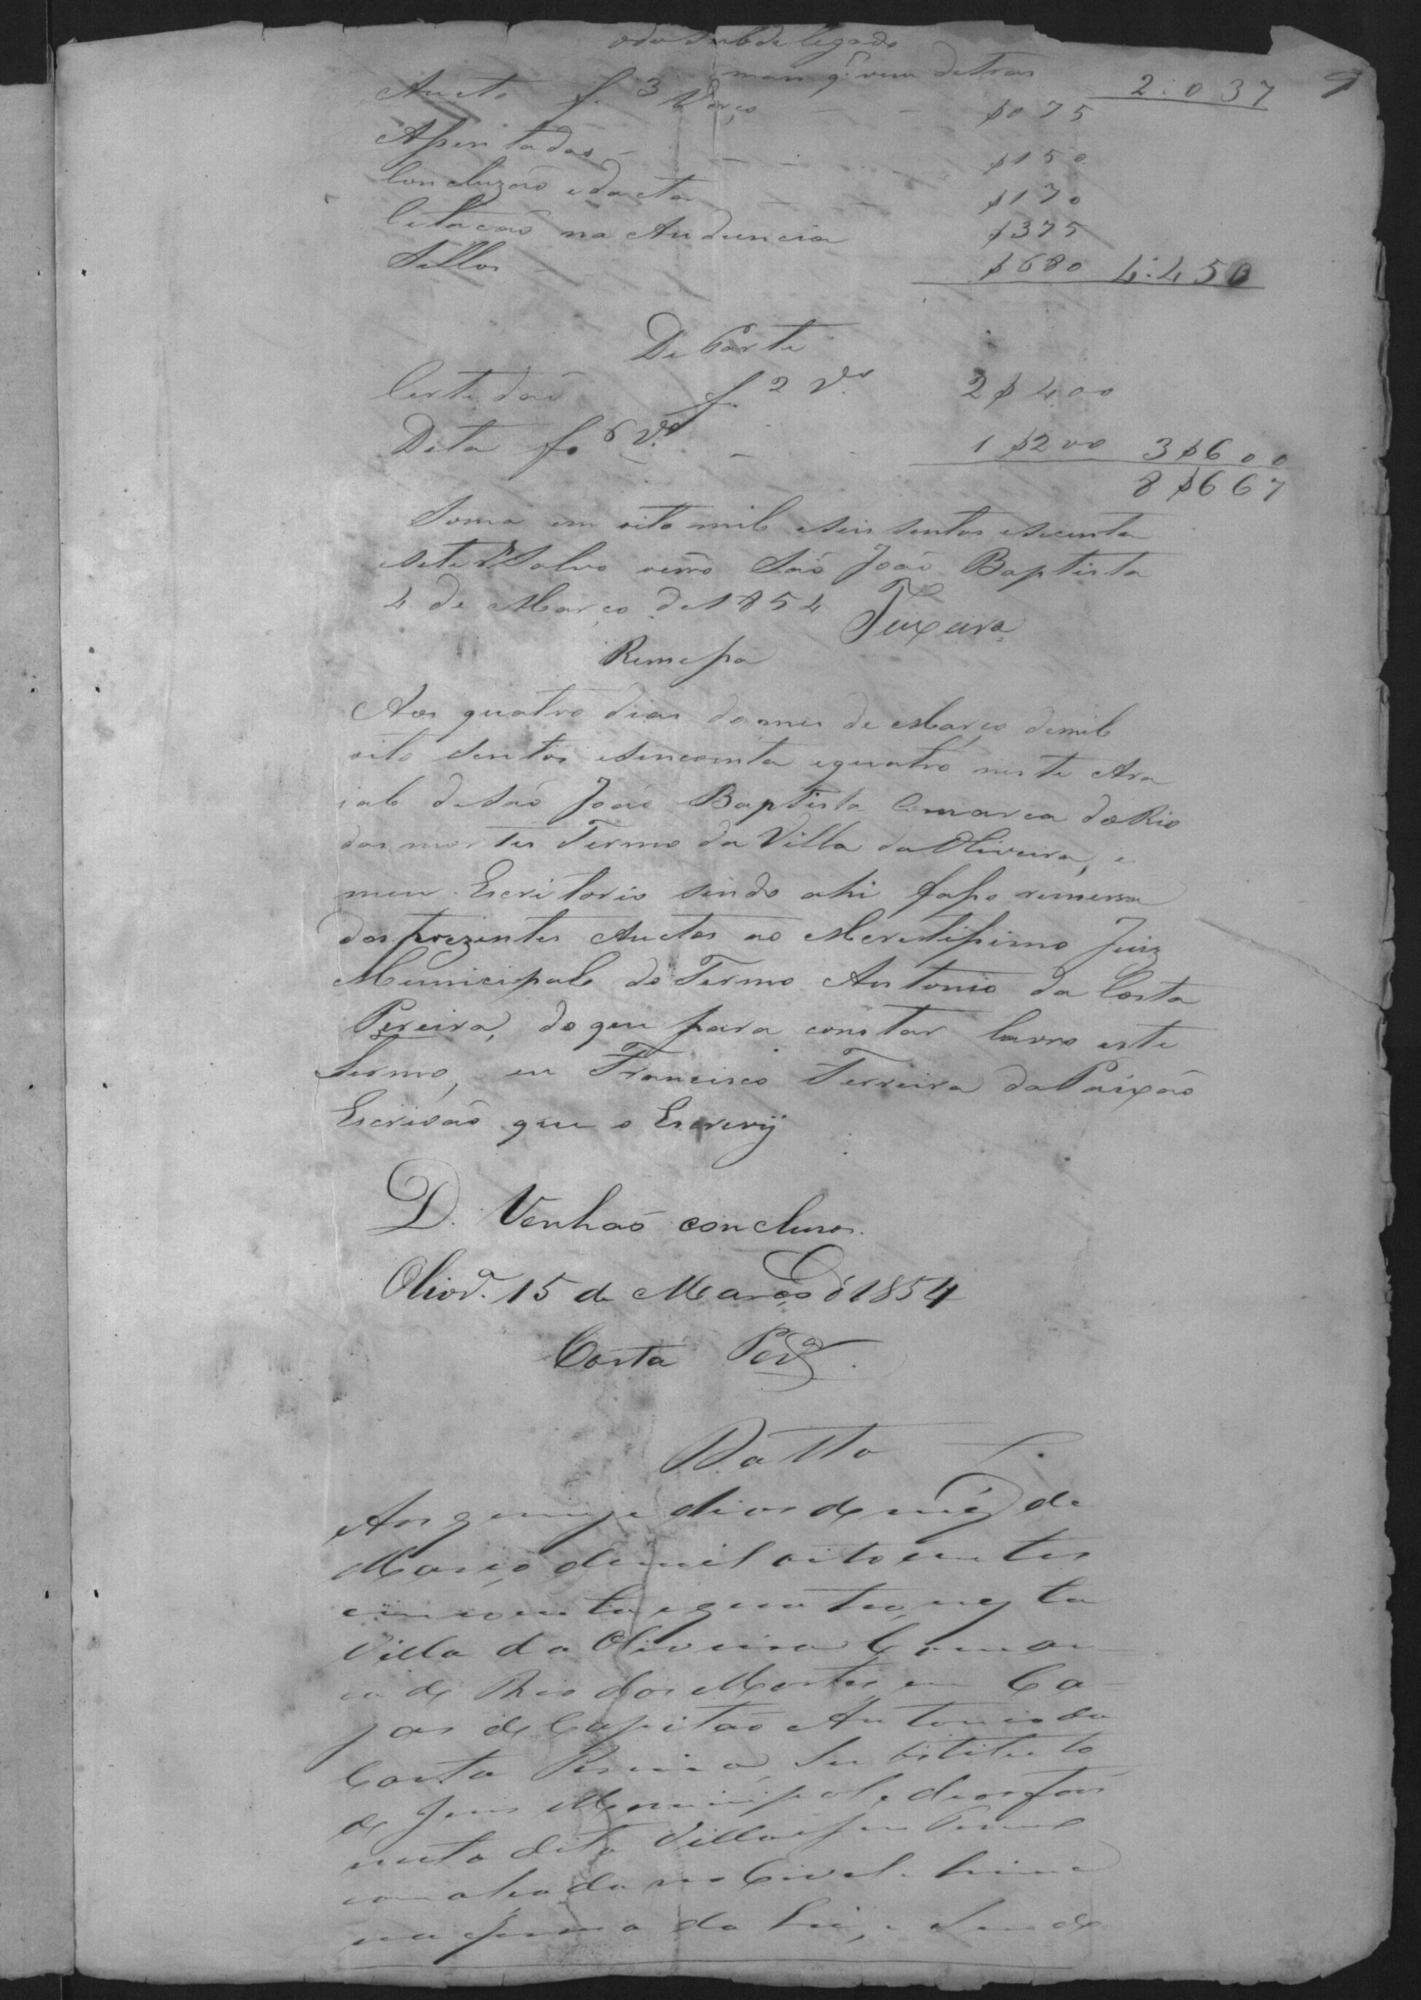 do Subdelegado
mais q. vem detras 2:037 9
Aucto f. 3 Verço $075
Apentadas $150
Concluzaõ e dacta $170
Citacaõ na Audiencia $375
Sellos $680 4:450
De Parte
Certidaõ f. 2 v.o 2$400
Dita f. 6 v.o 1$200 3$600
8$667
Soma em oito mil e seis sentos e secenta
e sete rs Salvo erro Saõ João Baptista
4 de Março de 1854 Teixeira
Remessa
Aos quatro dias do mes de Março de mil
oito sentos e sincoenta e quatro neste Ara
ial de São João Baptista Comarca do Rio
das mortes Termo da Villa da Oliveira, e
meu Escritorio sendo ahi faço remessa
dos prezentes Auctos ao Meretissimo Juiz
Municipal do Termo Antonio da Costa
Pereira, do que para constar lavro este
termo, eu Francisco Ferreira da Paixaõ
Escrivaõ que o Escrevÿ
D. Venhaõ concluzos.
Olivr.a 15 de Março d 1854
Costa Per.a
Datta
Aos quinze dias do mês de
Março de mil oito centos
cincoenta e quatro, nesta
Villa da Oliveira Comar
ca do Rio das Mortes em Ca-
zas do Capitão Antonio da
Costa Pereira, Substituto
do Juis Municipal e de orfaõs
nesta dita Villa e seu Termo
com alçada no Civel e Crime
na forma da Lei, e Sendo